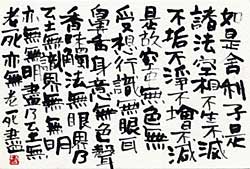 如是舍利子是
諸法空相不生不滅
不垢不淨不增不減
是故空中無色無
受想行識無眼耳
鼻舌身意無色聲
香味觸法無眼界乃
至無意識界無無明
亦無無明盡乃至無
老死亦無老死盡